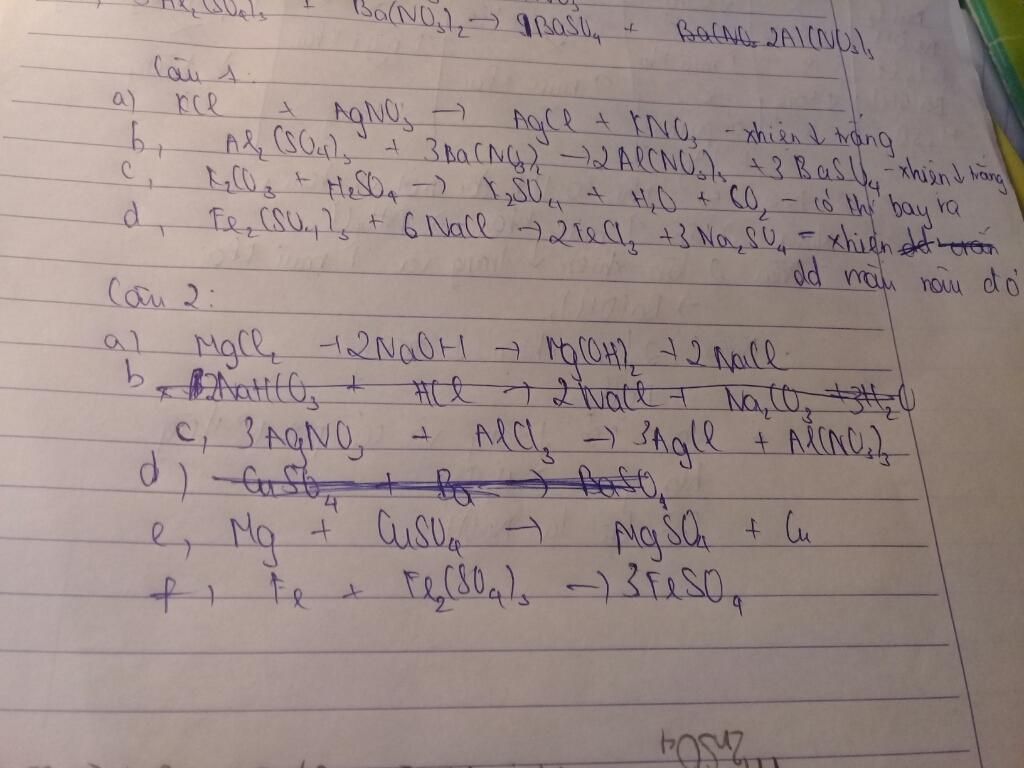 Al₂(SO₄)₃ + Ba(NO₃)₂ → BaSO₄ + Ba(NO₃ 2Al(NO₃)₃
Câu 1:
a) KCl + AgNO₃ → AgCl + KNO₃ - xhiện ↓ trắng
b, Al₂(SO₄)₃ + 3Ba(NO₃)₂ → 2Al(NO₃)₃ + 3BaSO₄ - xhiện ↓ trắng
c, K₂CO₃ + H₂SO₄ → K₂SO₄ + H₂O + CO₂ - có khí bay ra
d, Fe₂(SO₄)₃ + 6NaCl → 2FeCl₃ + 3Na₂SO₄ - xhiện
dd màu nâu đỏ
Câu 2:
a) MgCl₂ + 2NaOH → Mg(OH)₂ + 2NaCl
b, 2NaHCO₃ + HCl → 2NaCl + Na₂CO₃ + 3H₂O
c, 3AgNO₃ + AlCl₃ → 3AgCl + Al(NO₃)₃
d) CuSO₄ + Ba → BaSO₄
e, Mg + CuSO₄ → MgSO₄ + Cu
f, Fe + Fe₂(SO₄)₃ → 3FeSO₄
ZnSO₄